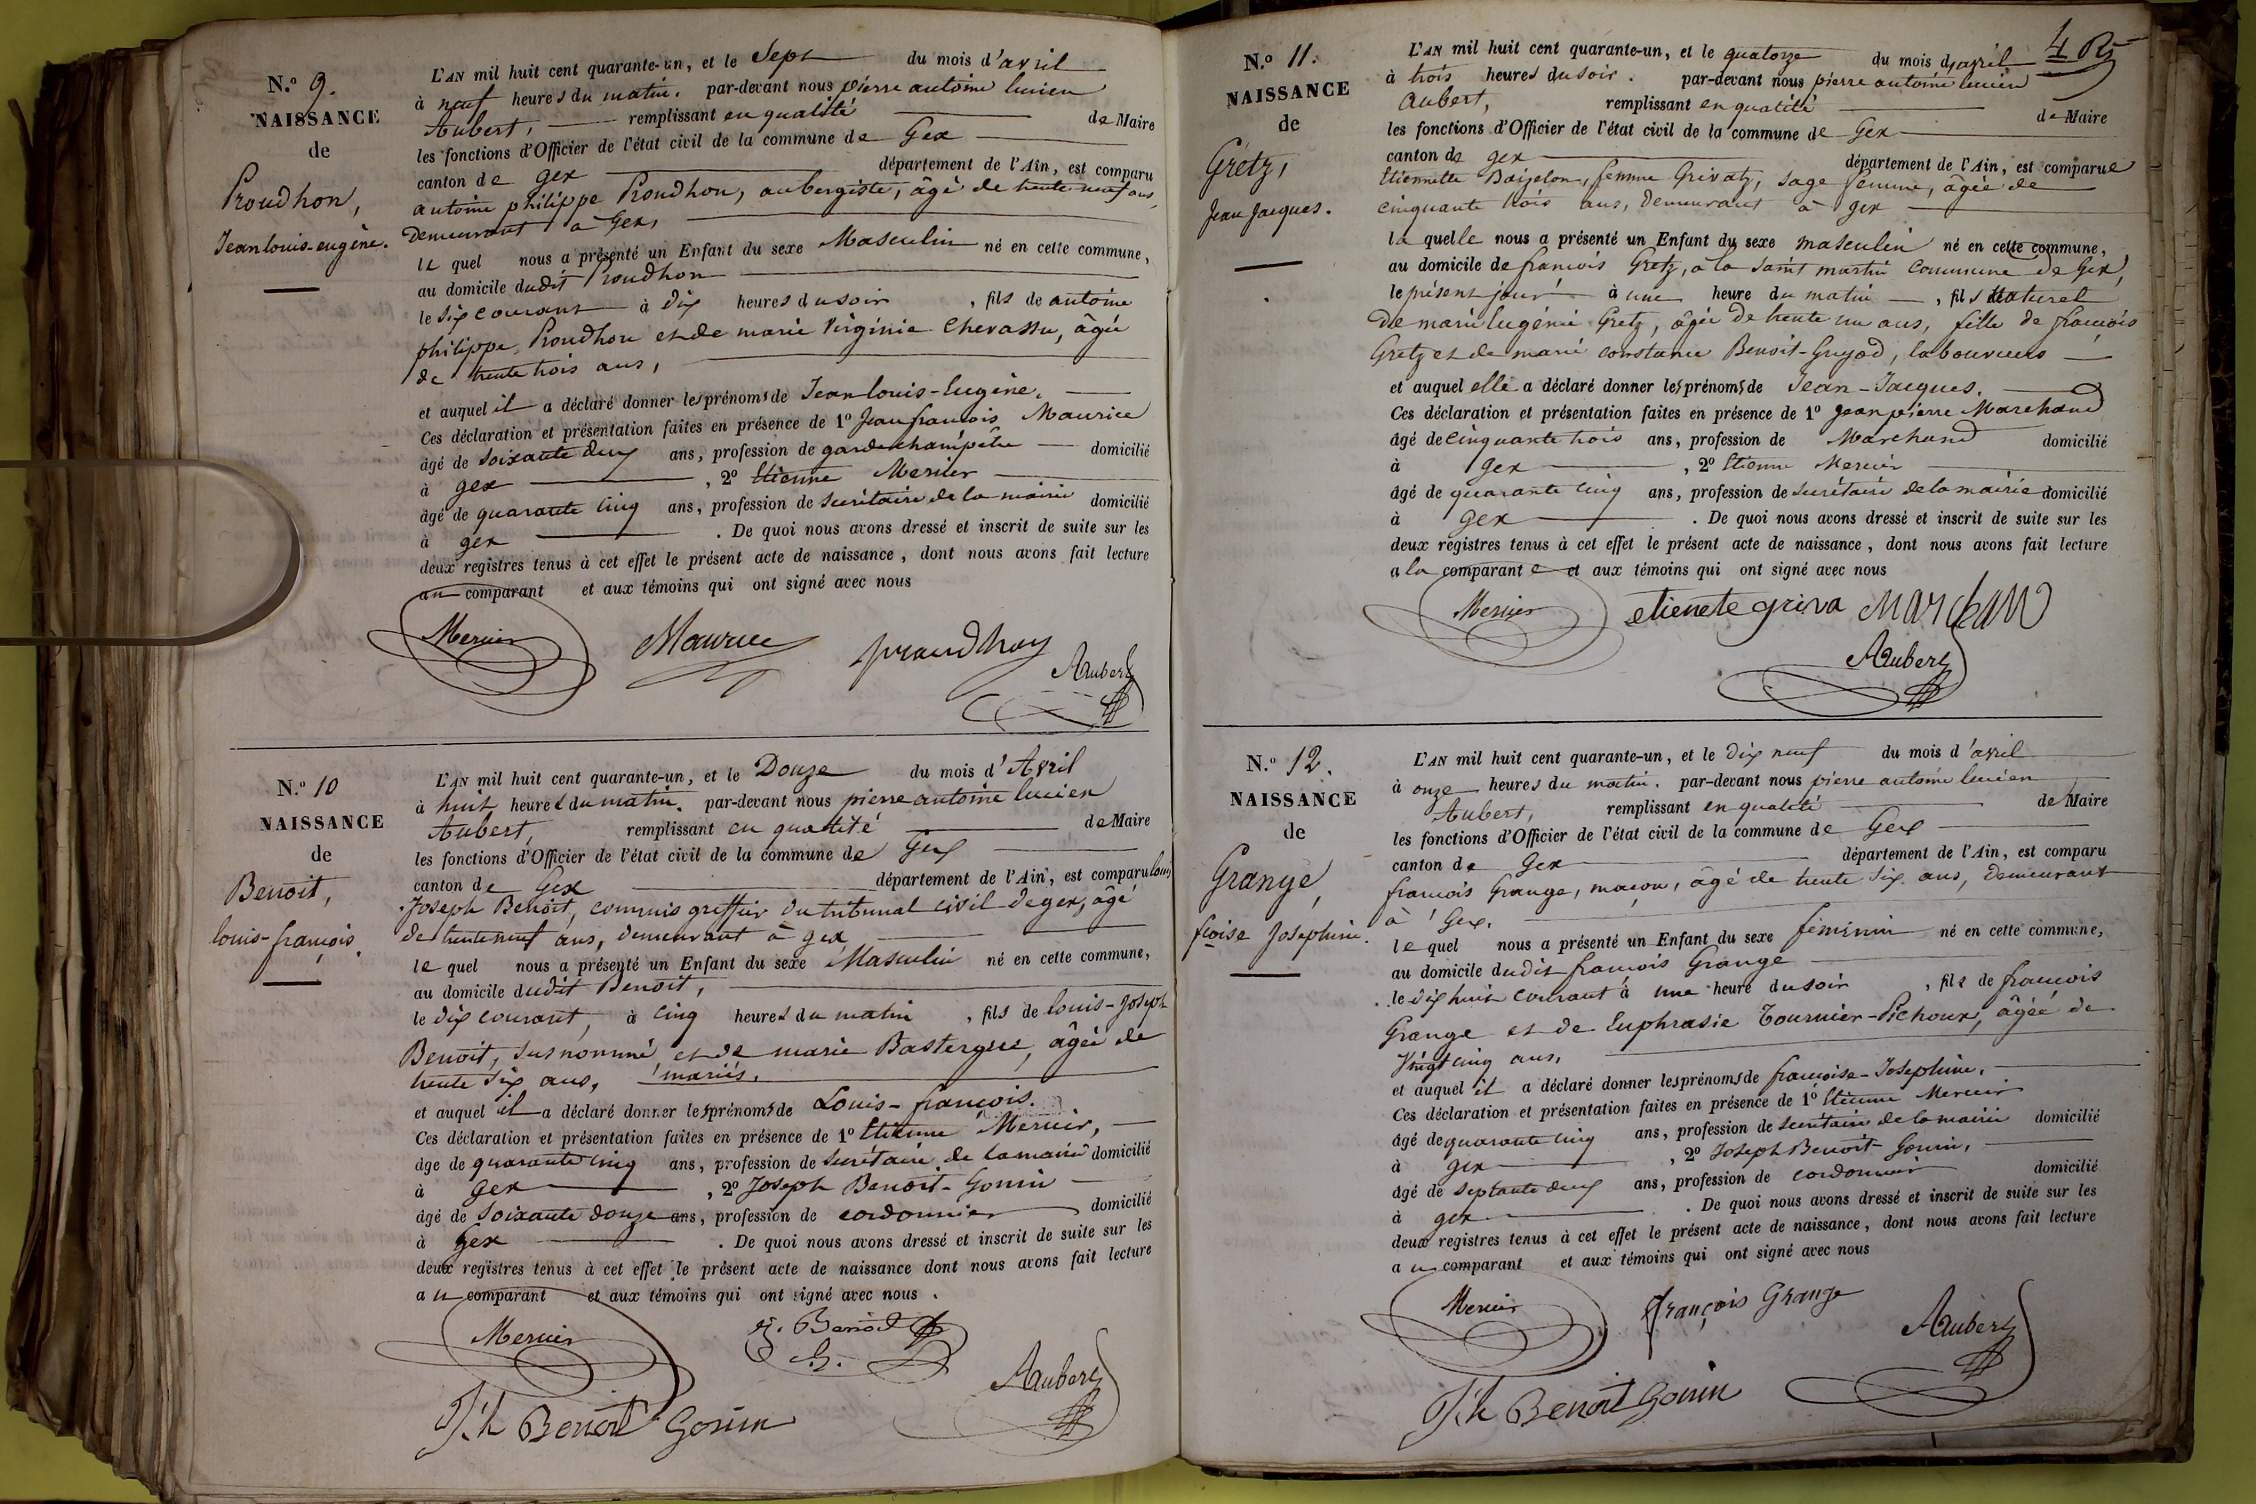 N.º 9.
NAISSANCE
de
Proudhon,
Jean louis-eugène.
L'AN mil huit cent quarante-un, et le Sept du mois d'avril
à neuf heures du matin. par-devant nous pierre antoine lucien
Aubert, remplissant en qualité de Maire
les fonctions d'Officier de l'état civil de la commune de Gex
canton de gex département de l'Ain, est comparu
antoine philippe Proudhon, aubergiste, âgé de trente neuf ans,
demeurant à Gex,
le quel nous a présenté un Enfant du sexe Masculin né en cette commune,
au domicile dudit Proudhon
le six courant à dix heures du soir, fils de antoine
philippe Proudhon et de marie Virginie Chevassu, âgée
de trente trois ans,
et auquel il a déclaré donner les prénoms de Jean louis-Eugène.
Ces déclaration et présentation faites en présence de 1º Jean françois Maurice
âgé de soixante deux ans, profession de garde champêtre domicilié
à gex, 2º Etienne Mercier
âgé de quarante cinq ans, profession de secrétaire de la mairie domicilié
à gex. De quoi nous avons dressé et inscrit de suite sur les
deux registres tenus à cet effet le présent acte de naissance, dont nous avons fait lecture
au comparant et aux témoins qui ont signé avec nous
Mercier Maurice proudhon Aubert
N.º 10
NAISSANCE
de
Benoit,
louis-françois.
L'AN mil huit cent quarante-un, et le Douze du mois d'Avril
à huit heures du matin. par-devant nous pierre antoine lucien
Aubert, remplissant en qualité de Maire
les fonctions d'Officier de l'état civil de la commune de Gex
canton de Gex département de l'Ain, est comparu louis
Joseph Benoit, commis greffier du tribunal civil de gex, âgé
de trente neuf ans, demeurant à gex
le quel nous a présenté un Enfant du sexe Masculin né en cette commune,
au domicile dudit Benoit,
le dix courant, à cinq heures du matin, fils de louis-Joseph
Benoit, susnommé, et de marie Bastergue, âgée de
trente six ans, mariés.
et auquel il a déclaré donner les prénoms de Louis-françois.
Ces déclaration et présentation faites en présence de 1º Etienne Mercier,
âgé de quarante cinq ans, profession de secrétaire de la mairie domicilié
à gex, 2º Joseph Benoit-Gonin
âgé de soixante douze ans, profession de cordonnier domicilié
à gex. De quoi nous avons dressé et inscrit de suite sur les
deux registres tenus à cet effet le présent acte de naissance dont nous avons fait lecture
au comparant et aux témoins qui ont signé avec nous.
Mercier Benoit
Aubert
Jh Benoit Gonin
4
N.º 11.
NAISSANCE
de
Gretz,
Jean Jacques.
L'AN mil huit cent quarante-un, et le quatorze du mois d'avril
à trois heures du soir. par-devant nous pierre antoine lucien
Aubert, remplissant en qualité de Maire
les fonctions d'Officier de l'état civil de la commune de Gex
canton de gex département de l'Ain, est comparue
Etiennette femme Grivatz, sage femme, âgée de
cinquante trois ans, demeurant à gex
la quelle nous a présenté un Enfant du sexe masculin né en cette commune,
au domicile de françois Gretz, à la saint martin commune de Gex,
le présent jour à une heure du matin, fils Naturel
de marie Eugénie Gretz, âgée de trente un ans, fille de françois
Gretz et de marie constance Benoit-Guyod, laboureurs
et auquel elle a déclaré donner les prénoms de Jean-Jacques.
Ces déclaration et présentation faites en présence de 1º Jean pierre Marchand
âgé de cinquante trois ans, profession de Marchand domicilié
à gex, 2º Etienne Mercier
âgé de quarante cinq ans, profession de secrétaire de la mairie domicilié
à gex. De quoi nous avons dressé et inscrit de suite sur les
deux registres tenus à cet effet le présent acte de naissance, dont nous avons fait lecture
a la comparante et aux témoins qui ont signé avec nous
Mercier etienete griva
Aubert
N.º 12.
NAISSANCE
de
Grange,
fçoise Josephine.
L'AN mil huit cent quarante-un, et le dix neuf du mois d'avril
à onze heures du matin. par-devant nous pierre antoine lucien
Aubert, remplissant en qualité de Maire
les fonctions d'Officier de l'état civil de la commune de Gex
canton de Gex département de l'Ain, est comparu
françois Grange, maçon, âgé de trente six ans, demeurant
à Gex.
le quel nous a présenté un Enfant du sexe féminin né en cette commune,
au domicile dudit françois Grange
le dix huit courant à une heure du soir, fille de françois
Grange et de Euphrasie Tournier-Pichoux, âgée de
Vingt cinq ans.
et auquel il a déclaré donner les prénoms de françoise-Josephine.
Ces déclaration et présentation faites en présence de 1º Etienne Mercier
âgé de quarante cinq ans, profession de secrétaire de la mairie domicilié
à gex, 2º Joseph Benoit-Gonin,
âgé de septante deux ans, profession de cordonnier domicilié
à gex. De quoi nous avons dressé et inscrit de suite sur les
deux registres tenus à cet effet le présent acte de naissance, dont nous avons fait lecture
au comparant et aux témoins qui ont signé avec nous
Mercier françois Grange Aubert
Jh Benoit Gonin